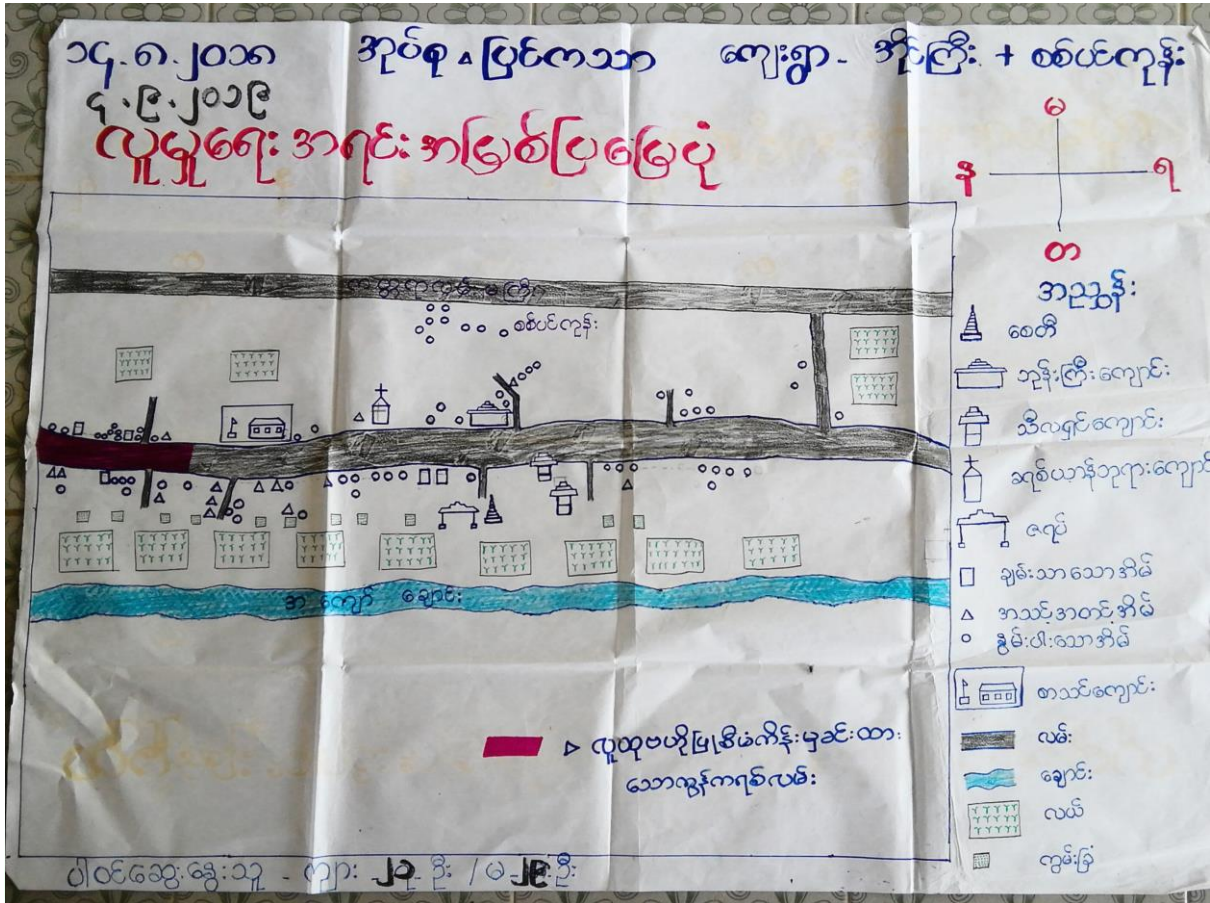 ၁၄.၈.၂၀၁၈ အုပ်စု ▵ ပြင်ကသာ ကျေးရွာ - အိုင်ကြီး + စစ်ပင်ကုန်း
၄.၉.၂၀၁၉
လူမှုရေး အရင်းအမြစ်ပြမြေပုံ
မ
န ရ
တ
အညွှန်း
စေတီ
ဘုန်းကြီးကျောင်း
သီလရှင်ကျောင်း
ခရစ်ယာန်ဘုရားကျောင်း
ဇရပ်
ချမ်းသာသောအိမ်
အသင့်အတင့်အိမ်
နွမ်းပါးသောအိမ်
စာသင်ကျောင်း
လမ်း
ချောင်း
လယ်
ကွမ်းခြံ
ကတ္တရာကွန်မကြီး
စစ်ပင်ကုန်း
အကျော် ချောင်း
▹ လူထုဗဟိုပြုစီမံကိန်းမှခင်းထား
သောကွန်ကရစ်လမ်း
ပါဝင်ဆွေးနွေးသူ - ကျား ၂၃ ဦး / မ ၂၉ ဦး